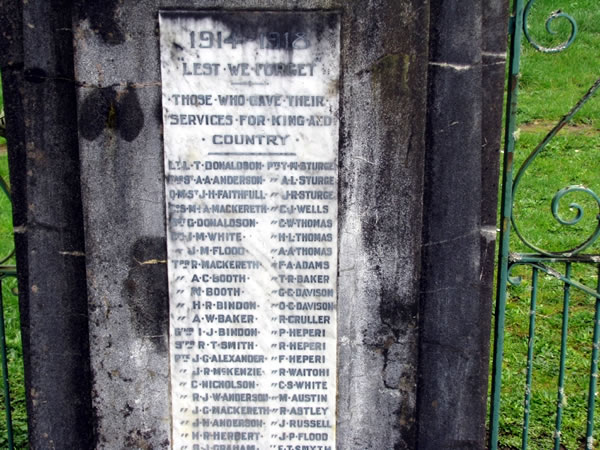 1914-1918
LEST WE FORGET
THOSE WHO GAVE THEIR
SERVICES FOR KING AND
COUNTRY
LT L·T·DONALDSON· PTE Y·M·STURGE
S·A·A·ANDERSON· " A·L·STURGE
Q·M·S J·H·FAITHFULL " J·R·STURGE
A·MACKERETH " C·J·WELLS
G·DONALDSON " C·W·THOMAS
J·M·WHITE· " H·L·THOMAS
" J·M·FLOOD " A·A·THOMAS
TPR R·MACKERETH " F·A·ADAMS
" A·C·BOOTH " T·R·BAKER
" M·BOOTH· " G·C·DAVISON
" H·R·BINDON " O·C·DAVISON
" A·W·BAKER " R·CRULLER
I·J·BINDON " P·HEPERI
R·T·SMITH " R·HEPERI
PTE J·G·ALEXANDER " F·HEPERI
" J·R·McKENZIE " R·WAITOHI
" C·NICHOLSON· " C·S·WHITE
" R·J·W·ANDERSON " M·AUSTIN
" J·G·MACKERETH " R·ASTLEY
" J·H·ANDERSON " J·RUSSELL
" H·R·HERBERT " J·P·FLOOD
" R·J·GRAHAM " F·T·SMYTH